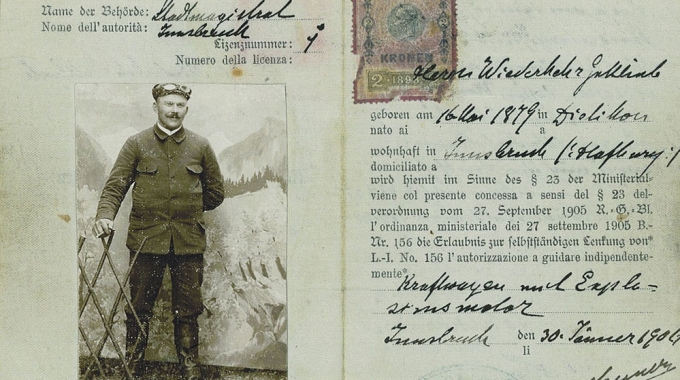 Name der Behörde: Stadtmagistrat
Nome dell'autorità: Innsbruck
Lizenznummer: 1
Numero della licenza:
KRONEN
2 1898
Herrn Wiederkehr Gottlieb
geboren am 16 Mai 1879 in Dietikon
nato ai a
wohnhaft in Innsbruck
domiciliato a
wird hiemit im Sinne des § 23 der Ministerial-
viene col presente concessa a sensi del § 23 del-
verordnung vom 27. September 1905 R.-G.-Bl.
l'ordinanza ministeriale dei 27 settembre 1905 B.-
Nr. 156 die Erlaubnis zur selbstständigen Lenkung von*
L.-I. No. 156 l'autorizzazione a guidare indipendente-
mente*
Kraftwagen mit Explo-
sionsmotor
Innsbruck den 30. Jänner 1906
li